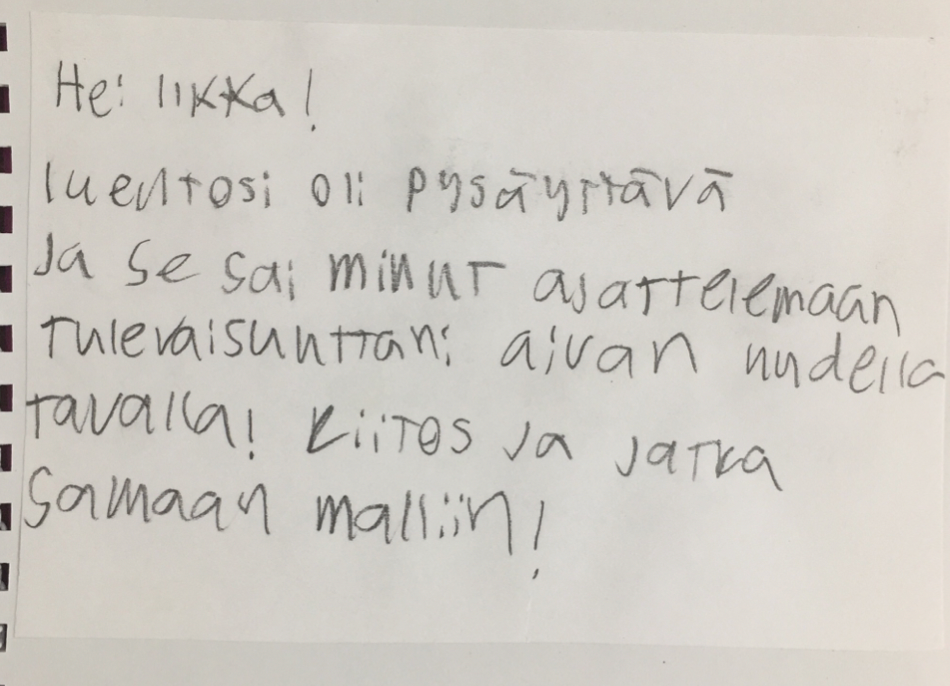 Hei Iikka!
luentosi oli pysäyttävä
Ja se sai minut ajattelemaan
tulevaisuuttani aivan uudella
tavalla! Kiitos ja jatka
samaan malliin!